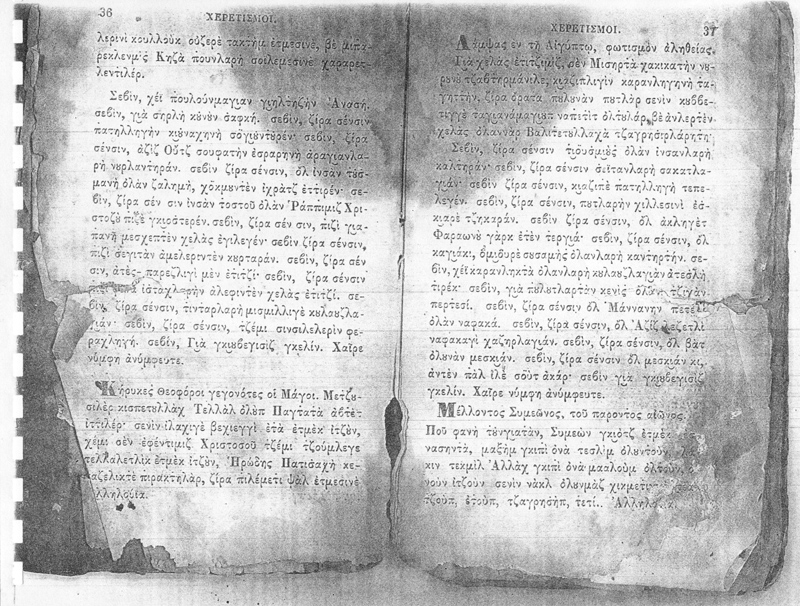 36
ΧΕΡΕΤΙΣΜΟΙ.
λερινὶ κουλλοὺκ οὐζερὲ τακτὴμ ἐτμεσινὲ, βὲ μιπα-
ρεκλενμὶς Κηζὰ πουνλαρὴ σοϊλεμεσινὲ χαραρετ-
λεντιλέρ.
Σεβὶν, χέϊ πουλούνμαγιαν γιηλτηζὴν Ἀνασὴ.
σεβὶν, γιὰ σηρλὴ κὺνὺν σαφκή. σεβὶν, ζίρα σένσιν
πατηλλὴγὴν κιὺναχηνὴ σὸγιὺντυρέν· σεβὶν, ζίρα
σένσιν, ἀζὶζ Οὔτζ σουφατὴν ἐσραρηνὴ ἀραγιανλα-
ρὴ νυρλαντηράν. σεβὶν ζίρα σένσιν, ὂλ ἰνσὰν τυσ-
μανὴ ὀλὰν ζαλημὴ, χὸκμυντὲν ἰχρὰτζ ἐττιρέν· σε-
βὶν, ζίρα σέν σιν ἰνσὰν τοστοῦ ὀλὰν Ῥάππιμιζ Χρι-
στοζοῦ πιζὲ γκιοστερέν. σεβὶν, ζίρα σέν σιν, πιζὶ για-
πανὴ μεσχεπτὲν χελὰς ἐγιλεγέν· σεβὶν ζίρα σένσιν,
πιζὶ σεγιτὰν ἀμελεριντὲν κυρταράν. σεβὶν, ζίρα σέν
σιν, ἀτὲς παρεζλιγὶ μὲν ἐτιτζί· σεβὶν, ζίρα σένσιν
ἰστὰχλαρὴν ἀλεφιντὲν χελὰς ἐτιτζί. σε-
βὶν, ζίρα σένσιν, τινταρλαρὴ μισμιλλιγὲ κυλαυζλα-
γιάν· σεβὶν, ζίρα σένσιν, τζέμι σινσιλελερὶν φε-
ραχληγή. σεβὶν, Γιὰ γκιυβεγισὶζ γκελίν. Χαῖρε
νύμφη ἀνύμφευτε.
Κήρυκες Θεοφόροι γεγονότες οἱ Μάγοι. Μετζου-
σιλὲρ κισπετυλλὰχ Τελλὰλ ὀλὺπ Παγτατὰ ἀβτὲτ
ἰττιλέρ· σενὶν ἰλαχιγὲ βεχιεγγὶ ἐτὰ ἐτμὲκ ἰτζὺν,
χέμι σὲν ἐφέντιμιζ Χριστοσοῦ τζέμι τζούμλεγε
τελλαλετλὶκ ἐτμὲκ ἰτζὺν, Ἡρώδης Πατισαχὴ κε-
παζελικτὲ πιρακτηλὰρ, ζίρα πιλέμετι ψὰλ ἐτμεσινὲ
λληλούϊα.
ΧΕΡΕΤΙΣΜΟΙ.
37
Λάμψας ἐν τῇ Αἰγύπτῳ, φωτισμὸν ἀληθείας.
Γιὰ χελὰς ἐτιτζιμὶζ, σὲν Μισηρτὰ χακικατὴν νυ-
ρυνὺ τζαβτηρμάνιλε, κιαζιπλιγὶν καρανληγηνὴ τα-
γήττην, ζίρα ὀρατὰ πυλυνὰν πυτλὰρ σενὶν κυββε-
τιγγὲ ταγιανάμαγιὺπ ναπετὶτ ὀλτυλὰρ, βὲ ἀνλερτὲν
χελὰς ὀλαννὰρ Βαλιτετυλλαχὰ τζαγρησιρλάρητη·
Σεβὶν, ζίρα σένσιν τιουσμιὺς ὀλὰν ἰνσανλαρὴ
καλτηράν· σεβὶν, ζίρα σένσιν σεϊτανλαρὴ σακατλα-
γιάν· σεβὶν, ζίρα σένσιν, κιαζιπὲ πατηλληγὴ τεπε-
λεγέν. σεβὶν, ζίρα σένσιν, πυτλαρὴν χιλλεσινὶ ἐσ-
κιαρὲ τζηκαράν. σεβὶν, ζίρα σένσιν, ὂλ ἀκληγὲτ
Φαραωνὺ γὰρκ ἐτὲν τεργιά· σεβὶν, ζίρα σένσιν, ὂλ
καγιακὶ, ὀμιουρὲ συσαμὴς ὀλανλαρὴ καντηρτήν. σε-
βὶν, χέϊ καρανληκτὰ ὀλανλαρὴ κυλαυζλαγιὰν ἀτεσλὴ
τιρέκ· σεβὶν, γιὰ πυλυτλαρτὰν κενὶς ὀλὰν τζιγὰν
περτεσί. σεβὶν, ζίρα σένσιν ὂλ Μάνναννην πετελὶ
ὀλὰν ναφακά. σεβὶν, ζίρα σένσιν, ὂλ Ἀζὶζ λεζετλὶ
ναφακαγὶ χαζηρλαγιάν. σεβὶν, ζίρα σένσιν, ὂλ βὰτ
ὀλυνὰν μεσκιάν. σεβὶν, ζίρα σένσιν ὂλ μεσκιὰν κι,
ἀντὲν πὰλ ἰλὲ σοὺτ ἀκάρ· σεβὶν γιὰ γκιυβεγισὶζ
γκελίν. Χαῖρε νύμφη ἀνύμφευτε.
Μέλλοντος Συμεῶνος, τοῦ παρόντος αἰῶνος.
Ποῦ φανὴ τὺνγιατὰν, Συμεὼν γκιὸτζ ἐτμὲκ
νασηντὰ, μαξὴμ γκιπὶ ὀνὰ τεσλὶμ ὀλυντοὺν,
κιν τεκμὶλ Ἀλλὰχ γκιπὶ ὀνὰ μααλοὺμ ὀλτοὺν,
νοὺν ἰτζοὺν σενὶν νὰκλ ὀλυνμὰζ χικμετι
τζοὺπ, ἐτοὺπ, τζαγρησὴπ, τετί.. Ἀλληλούϊα.